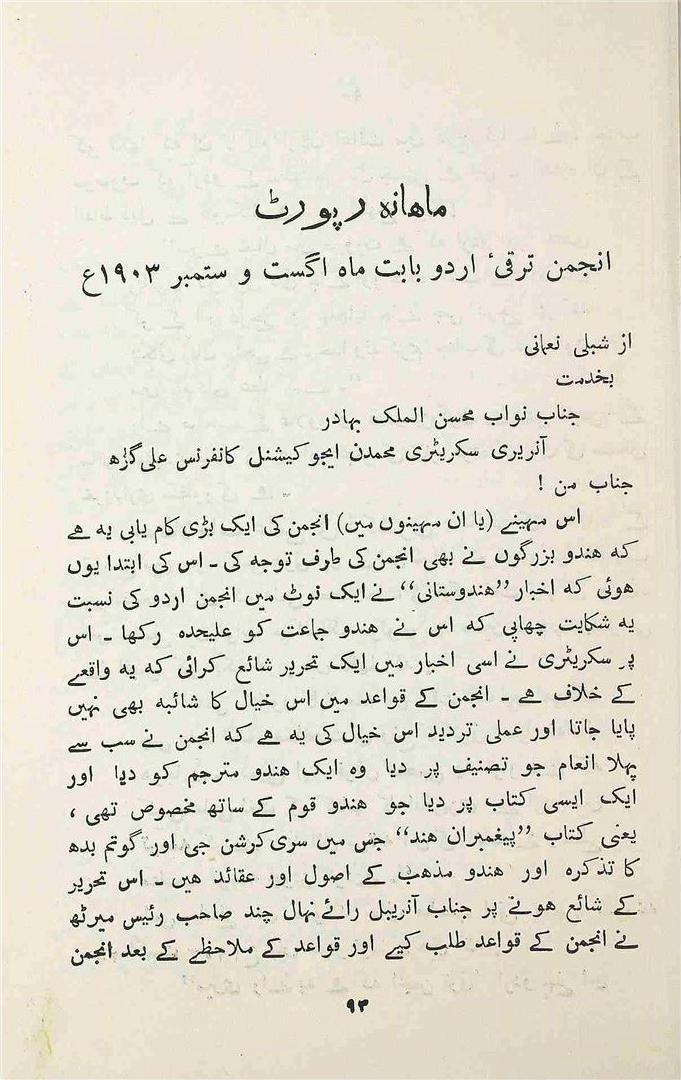 ماهانہ رپورٹ
انجمن ترقیٔ اردو بابت ماہ اگست و ستمبر ۱۹۰۳ع
از شبلی نعمانی
بخدمت
جناب نواب محسن الملک بہادر
آنریری سکریٹری محمدن ایجوکیشنل کانفرنس علی گڑھ
جناب من !
اس مہینے (یا ان مہینوں میں) انجمن کی ایک بڑی کام یابی یہ ہے
کہ ہندو بزرگوں نے بھی انجمن کی طرف توجہ کی ۔ اس کی ابتدا یوں
ہوئی کہ اخبار ”ہندوستانی“ نے ایک نوٹ میں انجمن اردو کی نسبت
یہ شکایت چھاپی کہ اس نے ہندو جماعت کو علیحدہ رکھا ۔ اس
پر سکریٹری نے اسی اخبار میں ایک تحریر شائع کرائی کہ یہ واقعے
کے خلاف ہے ۔ انجمن کے قواعد میں اس خیال کا شائبہ بھی نہیں
پایا جاتا اور عملی تردید اس خیال کی یہ ہے کہ انجمن نے سب سے
پہلا انعام جو تصنیف پر دیا وہ ایک ہندو مترجم کو دیا اور
ایک ایسی کتاب پر دیا جو ہندو قوم کے ساتھ مخصوص تھی ،
یعنی کتاب ”پیغمبران ہند“ جس میں سری کرشن جی اور گوتم بدھ
کا تذکرہ اور ہندو مذہب کے اصول اور عقائد ہیں ۔ اس تحریر
کے شائع ہونے پر جناب آنریبل رائے نہال چند صاحب رئیس میرٹھ
نے انجمن کے قواعد طلب کیے اور قواعد کے ملاحظے کے بعد انجمن
۹۳